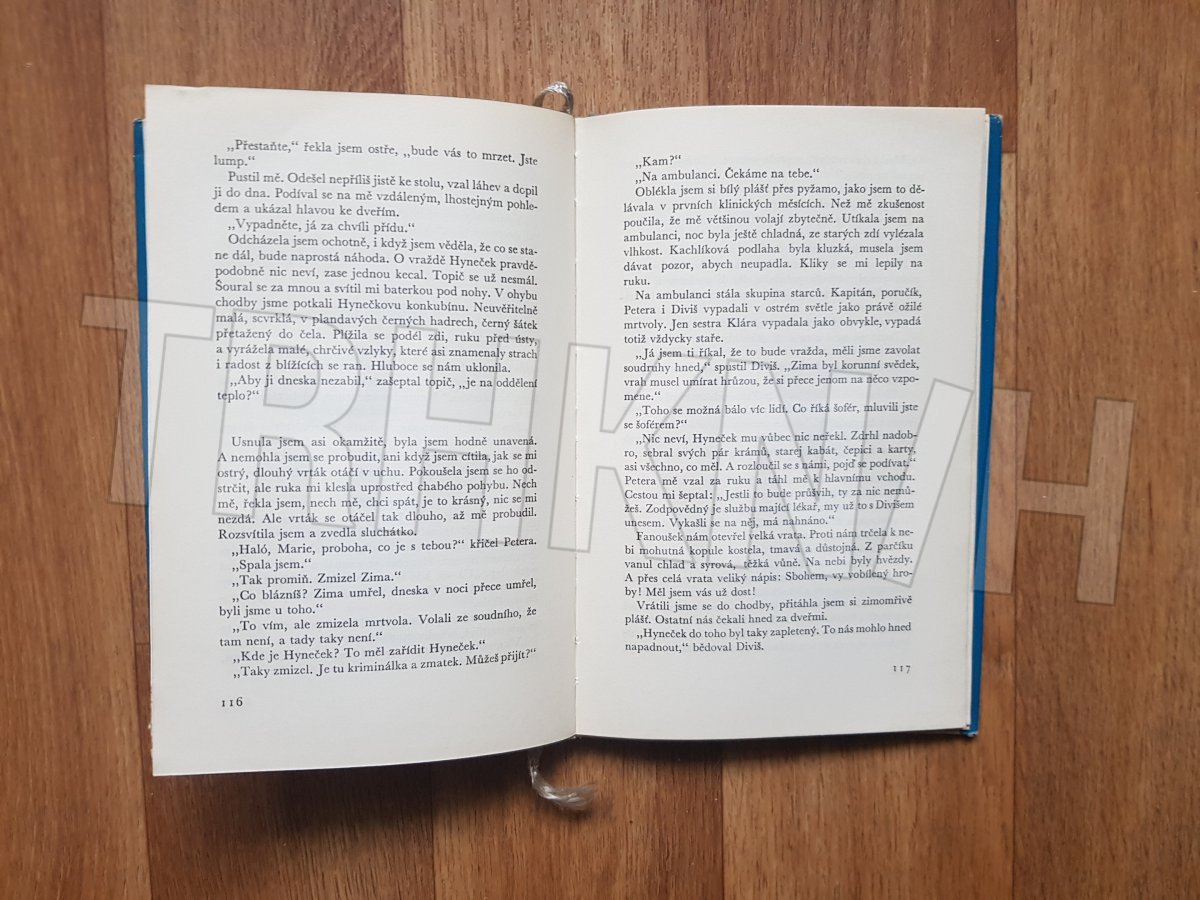 „Přestaňte,“ řekla jsem ostře, „bude vás to mrzet. Jste
lump.“
Pustil mě. Odešel nepříliš jistě ke stolu, vzal láhev a dopil
ji do dna. Podíval se na mě vzdáleným, lhostejným pohle-
dem a ukázal hlavou ke dveřím.
„Vypadněte, já za chvíli přídu.“
Odcházela jsem ochotně, i když jsem věděla, že co se sta-
ne dál, bude naprostá náhoda. O vraždě Hyneček pravdě-
podobně nic neví, zase jednou kecal. Topič se už nesmál.
Šoural se za mnou a svítil mi baterkou pod nohy. V ohybu
chodby jsme potkali Hynečkovu konkubínu. Neuvěřitelně
malá, scvrklá, v plandavých černých hadrech, černý šátek
přetažený do čela. Plížila se podél zdi, ruku před ústy,
a vyrážela malé, chrčivé vzlyky, které asi znamenaly strach
i radost z blížících se ran. Hluboce se nám uklonila.
„Aby ji dneska nezabil,“ zašeptal topič, „je na oddělení
teplo?“
Usnula jsem asi okamžitě, byla jsem hodně unavená.
A nemohla jsem se probudit, ani když jsem cítila, jak se mi
ostrý, dlouhý vrták otáčí v uchu. Pokoušela jsem se ho od-
strčit, ale ruka mi klesla uprostřed chabého pohybu. Nech
mě, řekla jsem, nech mě, chci spát, je to krásný, nic se mi
nezdá. Ale vrták se otáčel tak dlouho, až mě probudil.
Rozsvítila jsem a zvedla sluchátko.
„Haló, Marie, proboha, co je s tebou?“ křičel Petera.
„Spala jsem.“
„Tak promiň. Zmizel Zima.“
„Co blázníš? Zima umřel, dneska v noci přece umřel,
byli jsme u toho.“
„To vím, ale zmizela mrtvola. Volali ze soudního, že
tam není, a tady taky není.“
„Kde je Hyneček? To měl zařídit Hyneček.“
„Taky zmizel. Je tu kriminálka a zmatek. Můžeš přijít?“
116
„Kam?“
„Na ambulanci. Čekáme na tebe.“
Oblékla jsem si bílý plášť přes pyžamo, jako jsem to dě-
lávala v prvních klinických měsících. Než mě zkušenost
poučila, že mě většinou volají zbytečně. Utíkala jsem na
ambulanci, noc byla ještě chladná, ze starých zdí vylézala
vlhkost. Kachlíková podlaha byla kluzká, musela jsem
dávat pozor, abych neupadla. Kliky se mi lepily na
ruku.
Na ambulanci stála skupina starců. Kapitán, poručík,
Petera i Diviš vypadali v ostrém světle jako právě ožilé
mrtvoly. Jen sestra Klára vypadala jako obvykle, vypadá
totiž vždycky staře.
„Já jsem ti říkal, že to bude vražda, měli jsme zavolat
soudruhy hned,“ spustil Diviš. „Zima byl korunní svědek,
vrah musel umírat hrůzou, že si přece jenom na něco vzpo-
mene.“
„Toho se možná bálo víc lidí. Co říká šofér, mluvili jste
se šoférem?“
„Nic neví, Hyneček mu vůbec nic neřekl. Zdrhl nadob-
ro, sebral svých pár krámů, starej kabát, čepici a karty,
asi všechno, co měl. A rozloučil se s námi, pojď se podívat.“
Petera mě vzal za ruku a táhl mě k hlavnímu vchodu.
Cestou mi šeptal: „Jestli to bude průšvih, ty za nic nemů-
žeš. Zodpovědný je službu mající lékař, my už to s Divišem
unesem. Vykašli se na něj, má nahnáno.“
Fanoušek nám otevřel velká vrata. Proti nám trčela k ne-
bi mohutná kopule kostela, tmavá a důstojná. Z parčíku
vanul chlad a syrová, těžká vůně. Na nebi byly hvězdy.
A přes celá vrata veliký nápis: Sbohem, vy vobílený hro-
by! Měl jsem vás už dost!
Vrátili jsme se do chodby, přitáhla jsem si zimomřivě
plášť. Ostatní nás čekali hned za dveřmi.
„Hyneček do toho byl taky zapletený. To nás mohlo hned
napadnout,“ bědoval Diviš.
117